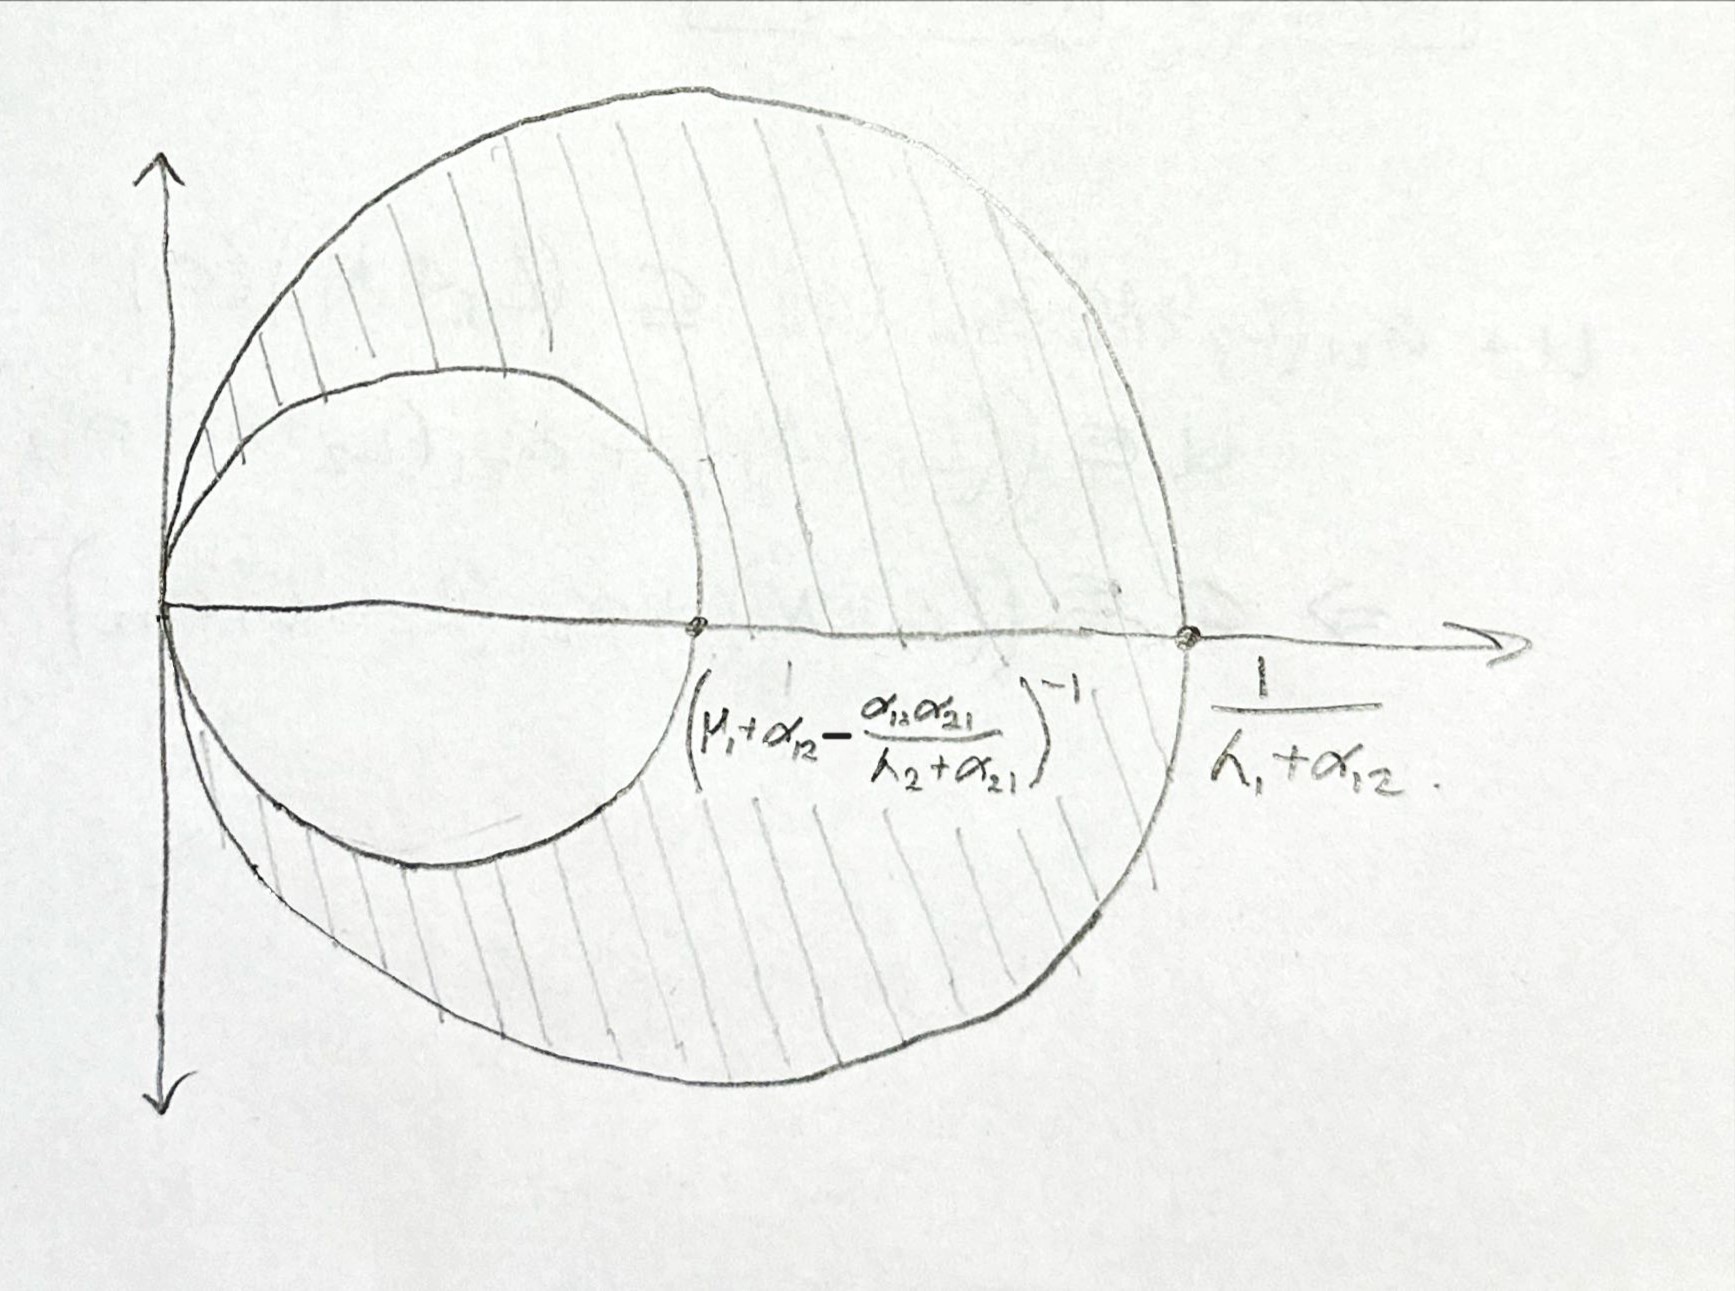 (μ₁+α₁₂−α₁₂α₂₁/(λ₂+α₂₁))⁻¹
1/(λ₁+α₁₂).